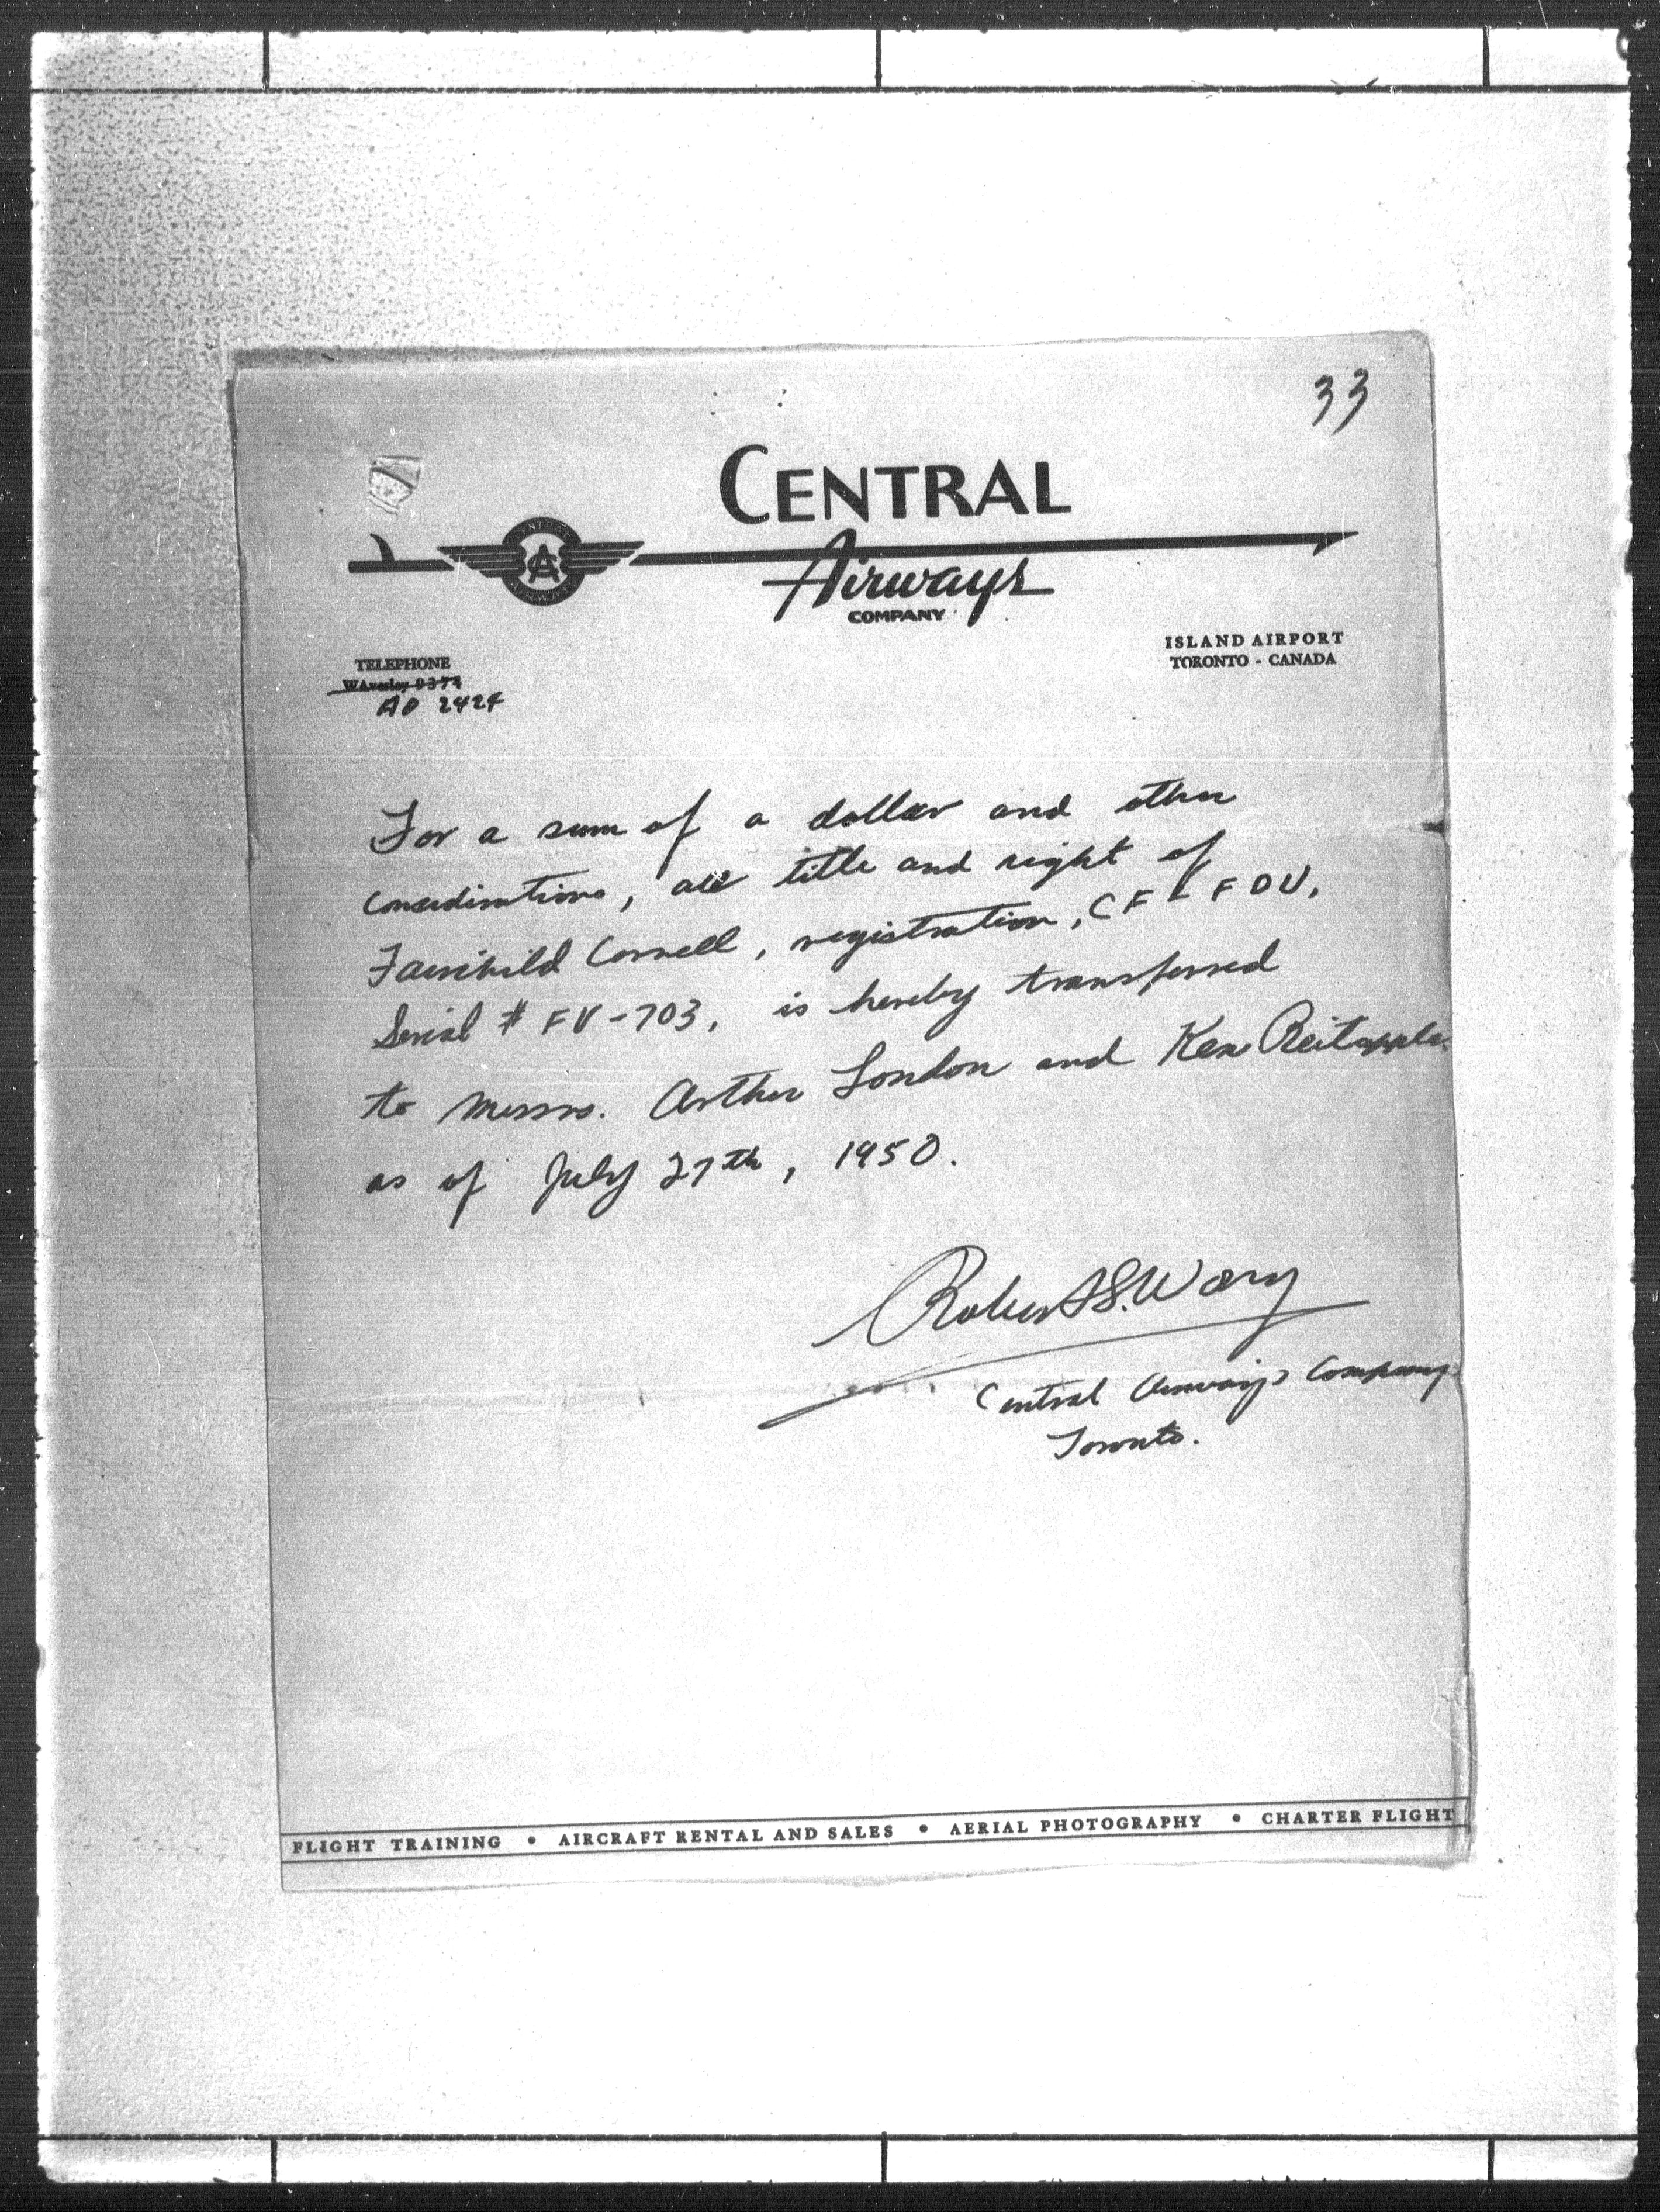 33
CENTRAL
Airways
COMPANY
CENTRAL
CA
AIRWAYS
ISLAND AIRPORT
TORONTO - CANADA
TELEPHONE
WAverley 9374
AD 2424
For a sum of a dollar and other
considirations, all title and right of
Fairchild Cornell, registration, CF - FDU,
Serial # FV-703, is hereby transferred
to Messrs. Arthur London and Ken
as of July 27th, 1950.
Robert S. Wong
Central Airways Company
Toronto.
FLIGHT TRAINING • AIRCRAFT RENTAL AND SALES • AERIAL PHOTOGRAPHY • CHARTER FLIGHT